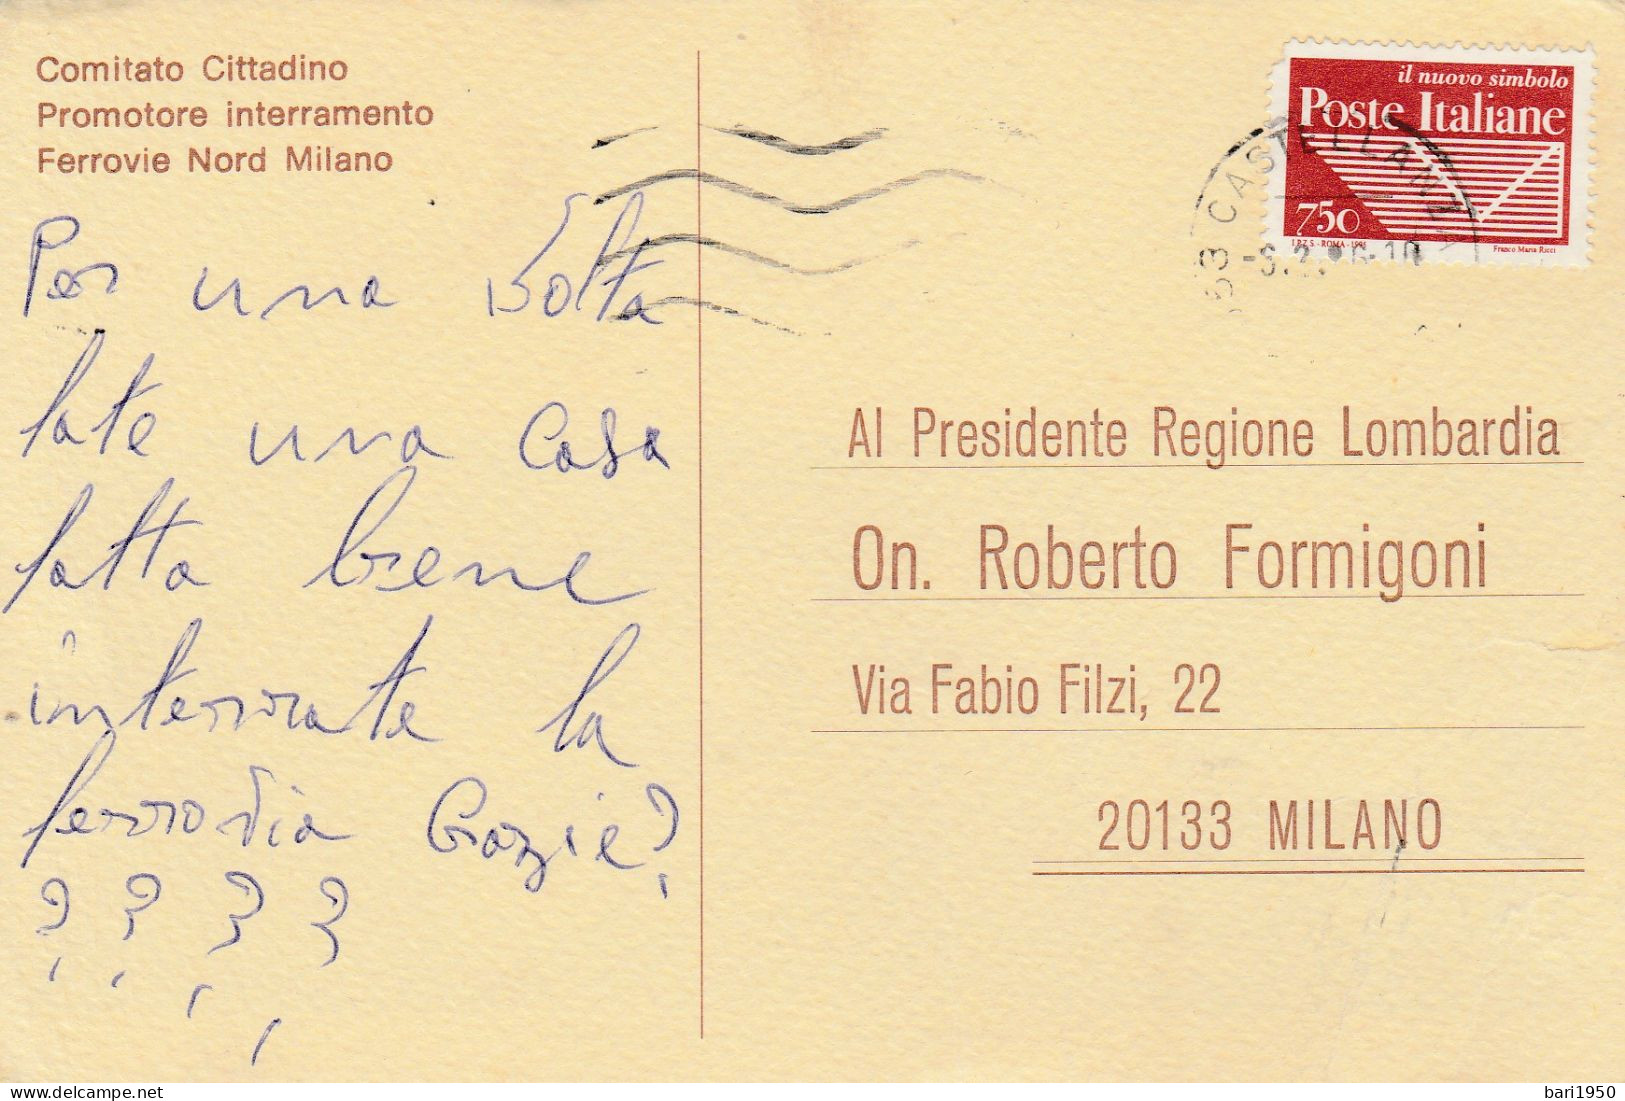 Comitato Cittadino
Promotore interramento
Ferrovie Nord Milano
Per una volta
fate una casa
fatta bene
interrate la
ferrovia Grazie?
? ? ? ?
il nuovo simbolo
Poste Italiane
750
I.P.Z.S. - ROMA - 1996
Franco Maria Ricci
53 CASTELLANZA
-6.2.96-10
Al Presidente Regione Lombardia
On. Roberto Formigoni
Via Fabio Filzi, 22
20133 MILANO
bari1950